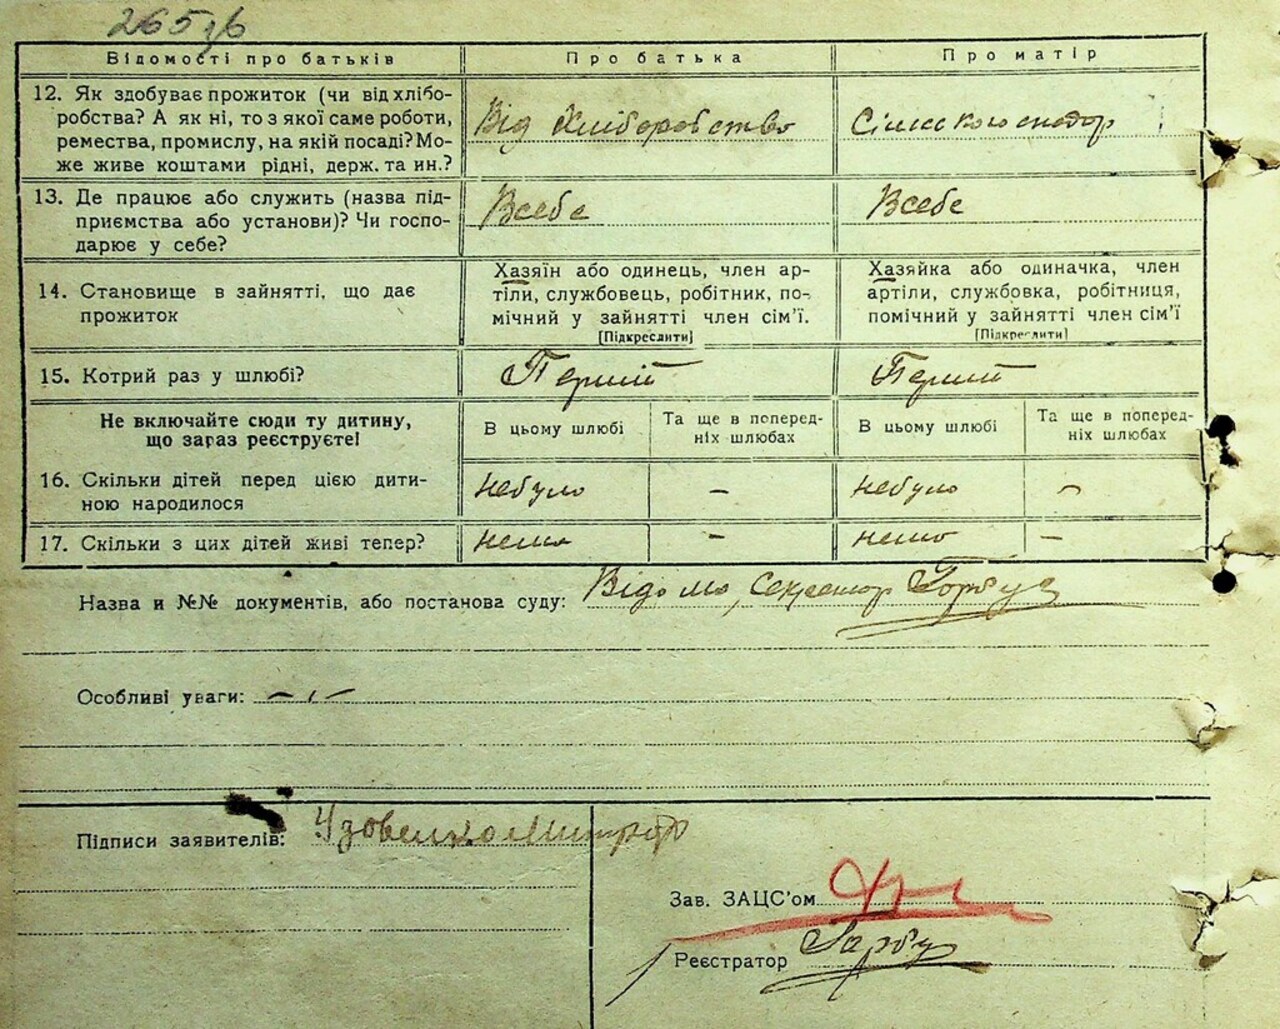 265зв
Відомості про батьків
Про батька
Про матір
12. Як здобуває прожиток (чи від хлібо-
робства? А як ні, то з якої саме роботи,
ремества, промислу, на якій посаді? Мо-
же живе коштами рідні, держ. та ин.?
Від хліборобство
13. Де працює або служить (назва під-
приємства або установи)? Чи госпо-
дарює у себе?
Всебе
Всебе
14. Становище в зайнятті, що дає
прожиток
Хазяїн або одинець, член ар-
тіли, службовець, робітник, по-
мічний у зайнятті член сім'ї.
[Підкреслити]
Хазяйка або одиначка, член
артіли, службовка, робітниця,
помічний у зайнятті член сім'ї
[Підкреслити]
15. Котрий раз у шлюбі?
Перший
Перший
Не включайте сюди ту дитину,
що зараз реєструєте!
В цьому шлюбі
Та ще в поперед-
ніх шлюбах
В цьому шлюбі
Та ще в поперед-
ніх шлюбах
16. Скільки дітей перед цією дити-
ною народилося
небуло
–
небуло
–
17. Скільки з цих дітей живі тепер?
нема
–
немо
–
Назва и №№ документів, або постанова суду: Відомо, Секретар Горбуз
Особливі уваги: – , –
Підписи заявителів: Удовенко Митроф
Зав. ЗАЦС'ом
Реєстратор Горбу